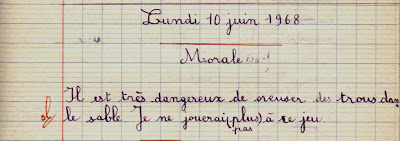 Lundi 10 juin 1968
Morale
Il est très dangereux de creuser des trous dan
le sable. Je ne jouerai (plus) à ce jeu
pas